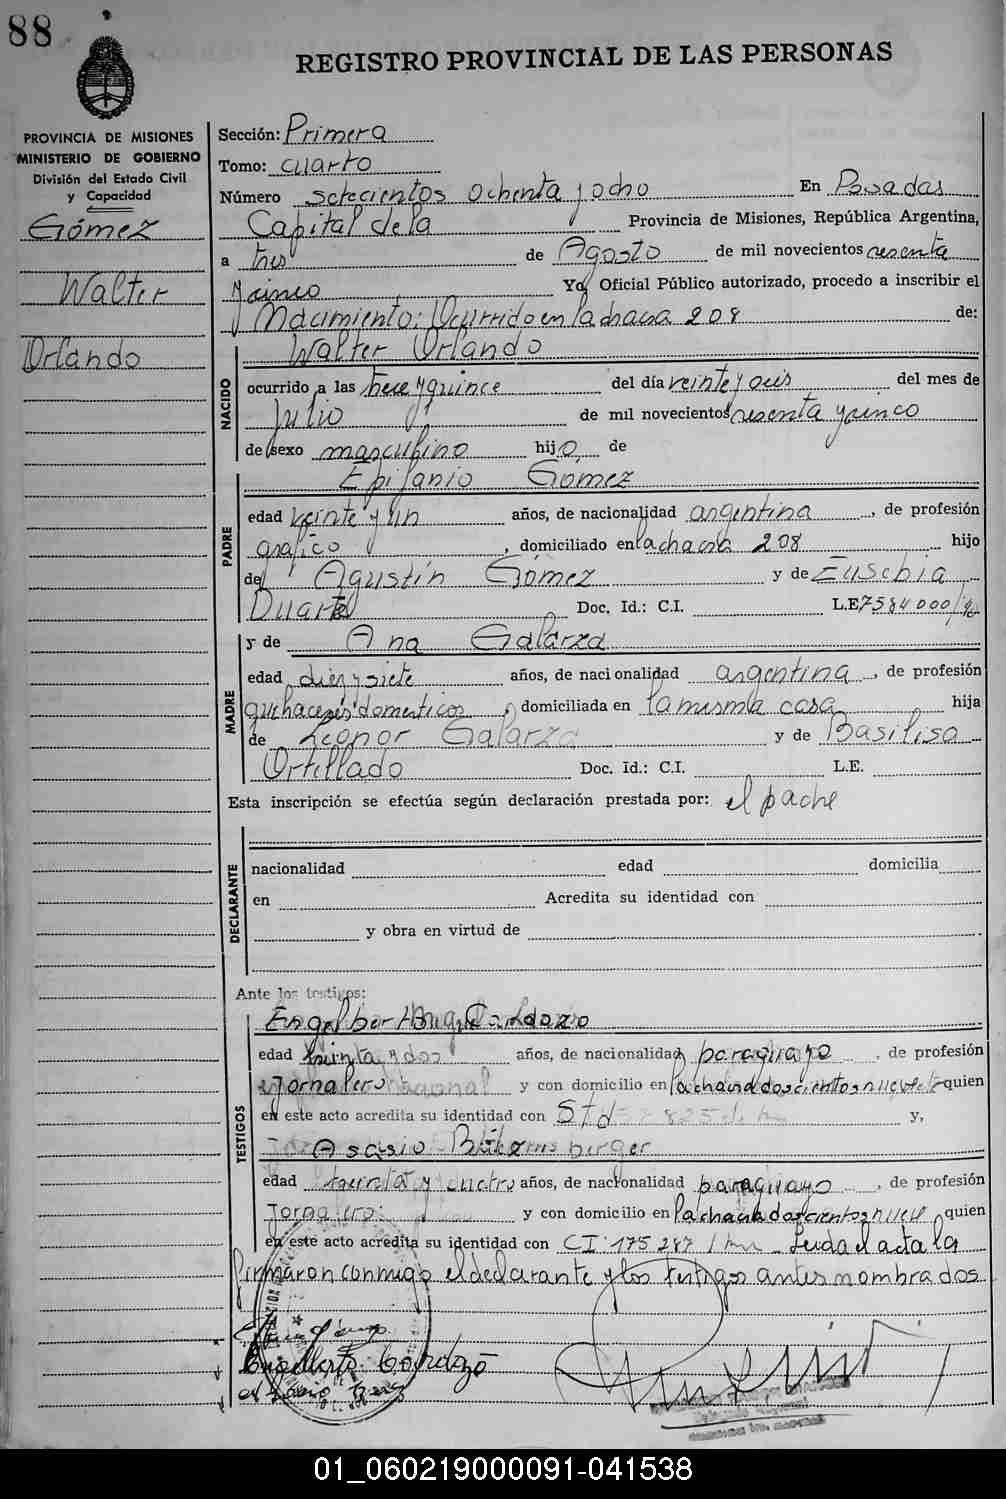 88
REGISTRO PROVINCIAL DE LAS PERSONAS
PROVINCIA DE MISIONES
MINISTERIO DE GOBIERNO
División del Estado Civil
y Capacidad
Gómez
Walter
Orlando
Sección: Primera
Tomo: cuarto
Número setecientos ochenta y ocho En Posadas
Capital de la Provincia de Misiones, República Argentina,
a tres de Agosto de mil novecientos sesenta
y cinco Yo, Oficial Público autorizado, procedo a inscribir el
Nacimiento: Ocurrido en la chacra 208 de:
NACIDO
Walter Orlando
ocurrido a las trece y quince del día veinte y seis del mes de
Julio de mil novecientos sesenta y cinco
de sexo masculino hijo de
PADRE
Epifanio Gómez
edad veinte y un años, de nacionalidad argentina, de profesión
gráfico, domiciliado en la chacra 208 hijo
de Agustín Gómez y de Eusebia
Duarte Doc. Id.: C.I. L.E. 7584000
MADRE
y de Ana Galarza
edad diez y siete años, de nacionalidad argentina, de profesión
quehaceres domesticos, domiciliada en la misma casa hija
de Leonor Galarza y de Basilisa
Ortellado Doc. Id.: C.I. L.E.
Esta inscripción se efectúa según declaración prestada por: el padre
DECLARANTE
nacionalidad edad domicilia
en Acredita su identidad con
y obra en virtud de
Ante los testigos:
TESTIGOS
Engelberto Cardozo
edad treinta y dos años, de nacionalidad paraguayo, de profesión
Jornalero y con domicilio en la chacra doscientos nueve quien
en este acto acredita su identidad con y,
Asasio
edad treinta y cuatro años, de nacionalidad paraguayo, de profesión
Jornalero y con domicilio en la chacra doscientos nueve, quien
en este acto acredita su identidad con CI 175287 Leida el acta la
firmaron conmigo el declarante y los testigos antes nombrados
01_060219000091-041538